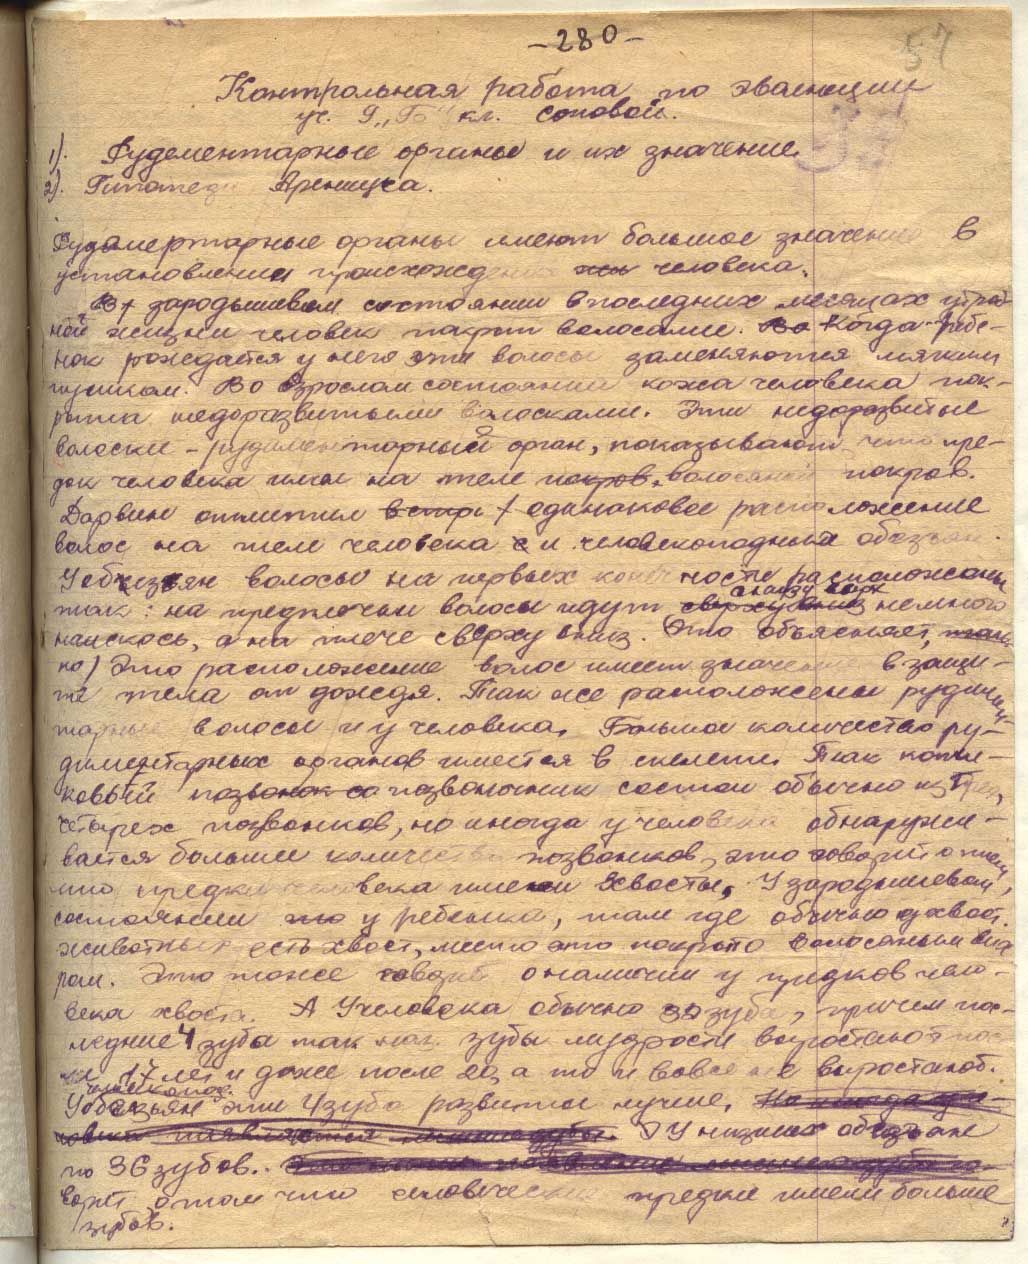 -280-
57
Контрольная работа по эвалюции
уч. 9 „Б" кл. соповой.
1). Рудементарные органы и их значение.
2). Гипотеза Арениуса.
Рудаментарные органы имеют большое значение в
установлении происхождения человека.
В зародышевом состоянии в последних месяцах утроб-
ной жизни человек покрыт волосами. Когда ребе-
нок рождается у него эти волосы заменяются мягким
пушком. Во взрослом состоянии кожа человека пок-
рыта недоразвитыми волосками. Эти недоразвитые
волоски - рудиментарный орган, показывают что пре-
док человека имел на теле волосяной покров.
Дарвин отметил одинаковое расположение
волос на теле человека и человекоподных обезьян.
У обезьян волосы на первых конечности расположены
так: на предплечьи волосы идут снизу вверх немного
наискось, а на плече сверху вниз. Это объясняет,
но) Это расположение волос имеет значение в защи-
те тела от дождя. Так же расположены рудимен-
тарные волосы и у человека. Большое количество ру-
диментарных органов имеется в скелете. Так копчи-
ковый позвоночник состоит обычно из трех,
четырех позвонков, но иногда у человека обнаружи-
вается больше количество позвонков, это говорит о том,
что предки человека имели хвосты. У зародышевом
состоянии у ребенка, там где обычно у хвост.
животных есть хвост, место это покрыто волосяным
ром. Это тоже говорит о наличии у предков чело-
века хвоста. А У человека обычно 32 зуба, причем пос-
ледние 4 зуба так наз. зубы мудрости выростают пос-
ле 17 лет и даже после 20, а то и вовсе не выростают.
У обезьян эти 4 зуба развиты лучше. У низших обезьян
по 36 зубов. го-
ворит о том что человеческие предки имели больше
зубов.